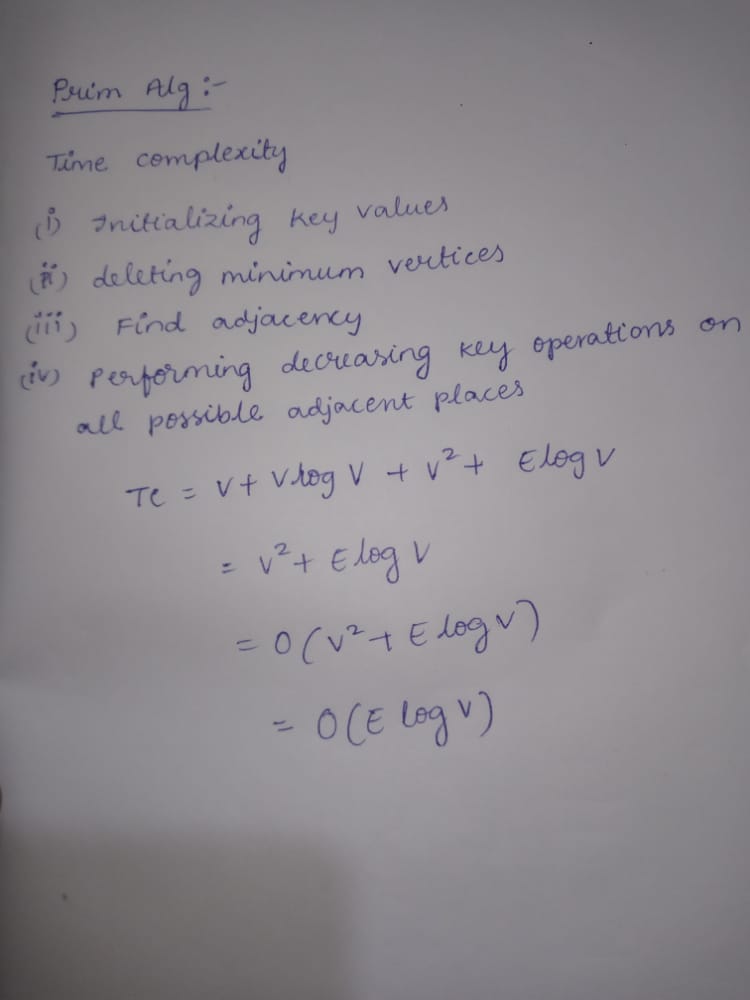 Prim Alg :-
Time complexity
(i) Initializing key values
(ii) deleting minimum vertices
(iii) Find adjacency
(iv) Performing decreasing key operations on
all possible adjacent places
TC = V + V log V + V² + E log V
= V² + E log V
= O(V² + E log V)
= O(E log V)